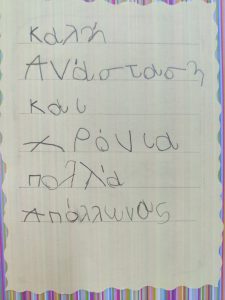 καλή
Ανάσταση
και
χρόνια
πολλά
Απόλλωνας